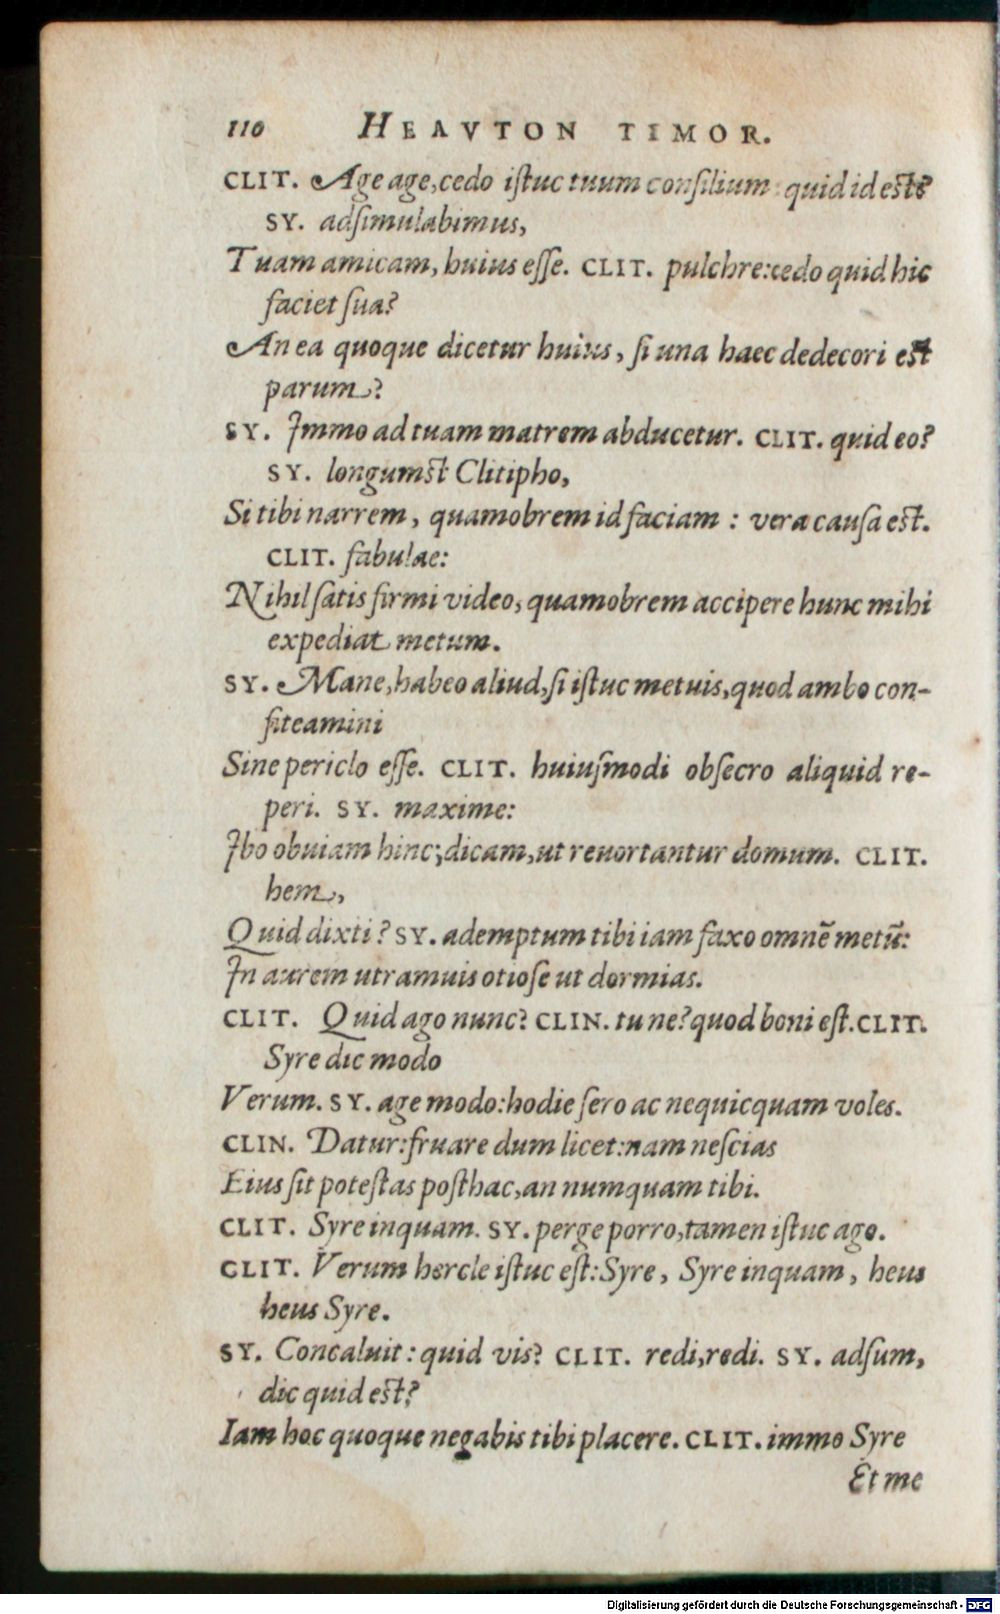 110 HEAVTON TIMOR.
CLIT. Age age, cedo iſtuc tuum conſilium: quid id eſt?
SY. adſimulabimus,
Tuam amicam, huius eſſe. CLIT. pulchre: cedo quid hic
faciet ſua?
An ea quoque dicetur huius, ſi una haec dedecori eſt
parum?
SY. Immo ad tuam matrem abducetur. CLIT. quid eo?
SY. longumſt Clitipho,
Si tibi narrem, quamobrem id faciam : vera cauſa eſt.
CLIT. fabulae:
Nihil ſatis firmi video, quamobrem accipere hunc mihi
expediat metum.
SY. Mane, habeo aliud, ſi iſtuc metuis, quod ambo con-
fiteamini
Sine periclo eſſe. CLIT. huiuſmodi obſecro aliquid re-
peri. SY. maxime:
Ibo obuiam hinc; dicam, ut reuortantur domum. CLIT.
hem,
Quid dixti? SY. ademptum tibi iam faxo omnē metū:
In aurem utramuis otioſe ut dormias.
CLIT. Quid ago nunc? CLIN. tu ne? quod boni eſt. CLIT.
Syre dic modo
Verum. SY. age modo: hodie ſero ac nequicquam voles.
CLIN. Datur: fruare dum licet: nam neſcias
Eius ſit poteſtas poſthac, an numquam tibi.
CLIT. Syre inquam. SY. perge porro, tamen iſtuc ago.
CLIT. Verum hercle iſtuc eſt: Syre, Syre inquam, heus
heus Syre.
SY. Concaluit: quid vis? CLIT. redi, redi. SY. adſum,
dic quid eſt?
Iam hoc quoque negabis tibi placere. CLIT. immo Syre
Et me
Digitalisierung gefördert durch die Deutsche Forschungsgemeinschaft - DFG